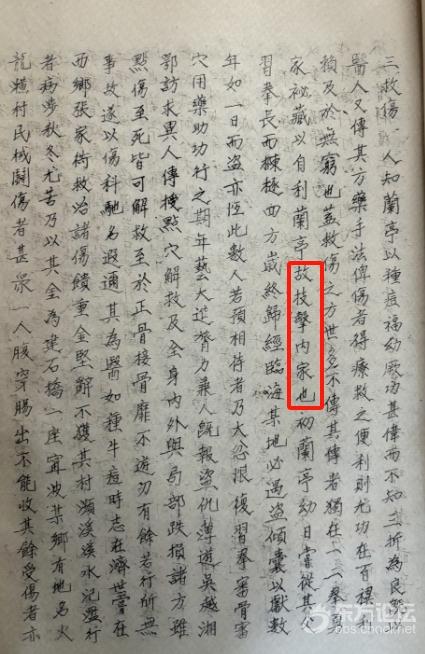 三救傷 人知蘭亭以種痘福幼厥功甚偉而不知三折為良
醫人又傳其方藥手法俾傷者得療救之便利則尤功在百
賴及於無窮也蓋救傷之方世多不傳其傳者獨在一二拳
家祕藏以自利蘭亭故技擊內家也初蘭亭幼日嘗從其
習拳長而西方歲終歸經臨海某地必遇盜傾囊以獻數
年如一日而盜亦恆此數人若預相待者乃大忿恨復習拳審骨審
穴用藥助功行之期年藝大進膂力兼人既報盜仇薄遊吳越湘
鄂訪求異人傳授點穴解救及全身內外與局部跌損諸方雖
點傷至死皆可解救至於正骨接骨靡不遊刃有餘若行所無
事故遂以傷科馳名遐邇其為醫如種牛痘時志在濟世嘗在
西鄉張家街救治諸傷饋重金堅辭不獲其村瀕溪溪水氾濫行
者病涉秋冬尤苦乃以其金為建石橋一座甯波某鄉有地名火
龍橫村民械鬭傷者甚眾一人腹穿腸出不能收其餘受傷者亦
东方论坛
bbs.cnool.net